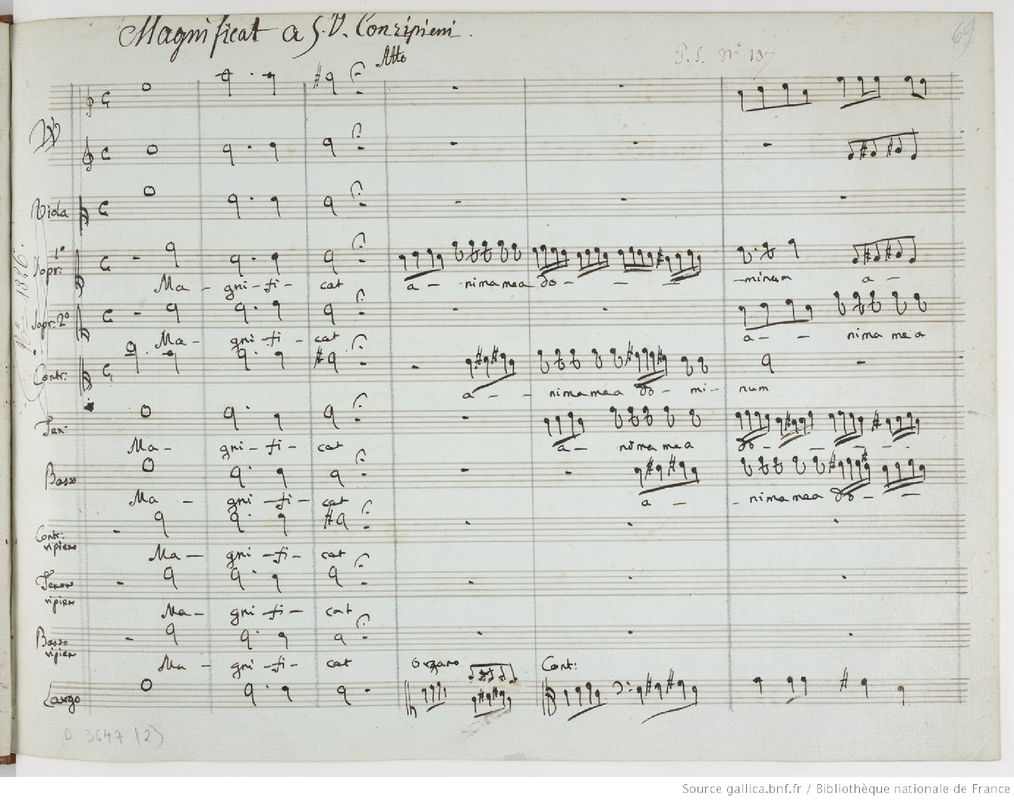 Magnificat a 5. V. Con ripieni.
69
Allo
P. S. nº 137
VV
C
C
Viola C
Sopr: 1º C
Ma - gni - fi - cat a - nima mea do - - - minum a -
Sopr: 2º C
Ma - gni - fi - cat a - - nima mea
Contr: C
a - - nima mea do - mi - num
Ten:
Ma - gni - fi - cat a - nima mea do - - - -
Basso
Ma - gni - fi - cat a - - nima mea do - -
Contr: ripieno
Ma - gni - fi - cat
Tenor ripien
Ma - gni - fi - cat
Basso ripien
Ma - gni - fi - cat organo Cont:
Largo
D 3647 (2)
Source gallica.bnf.fr / Bibliothèque nationale de France